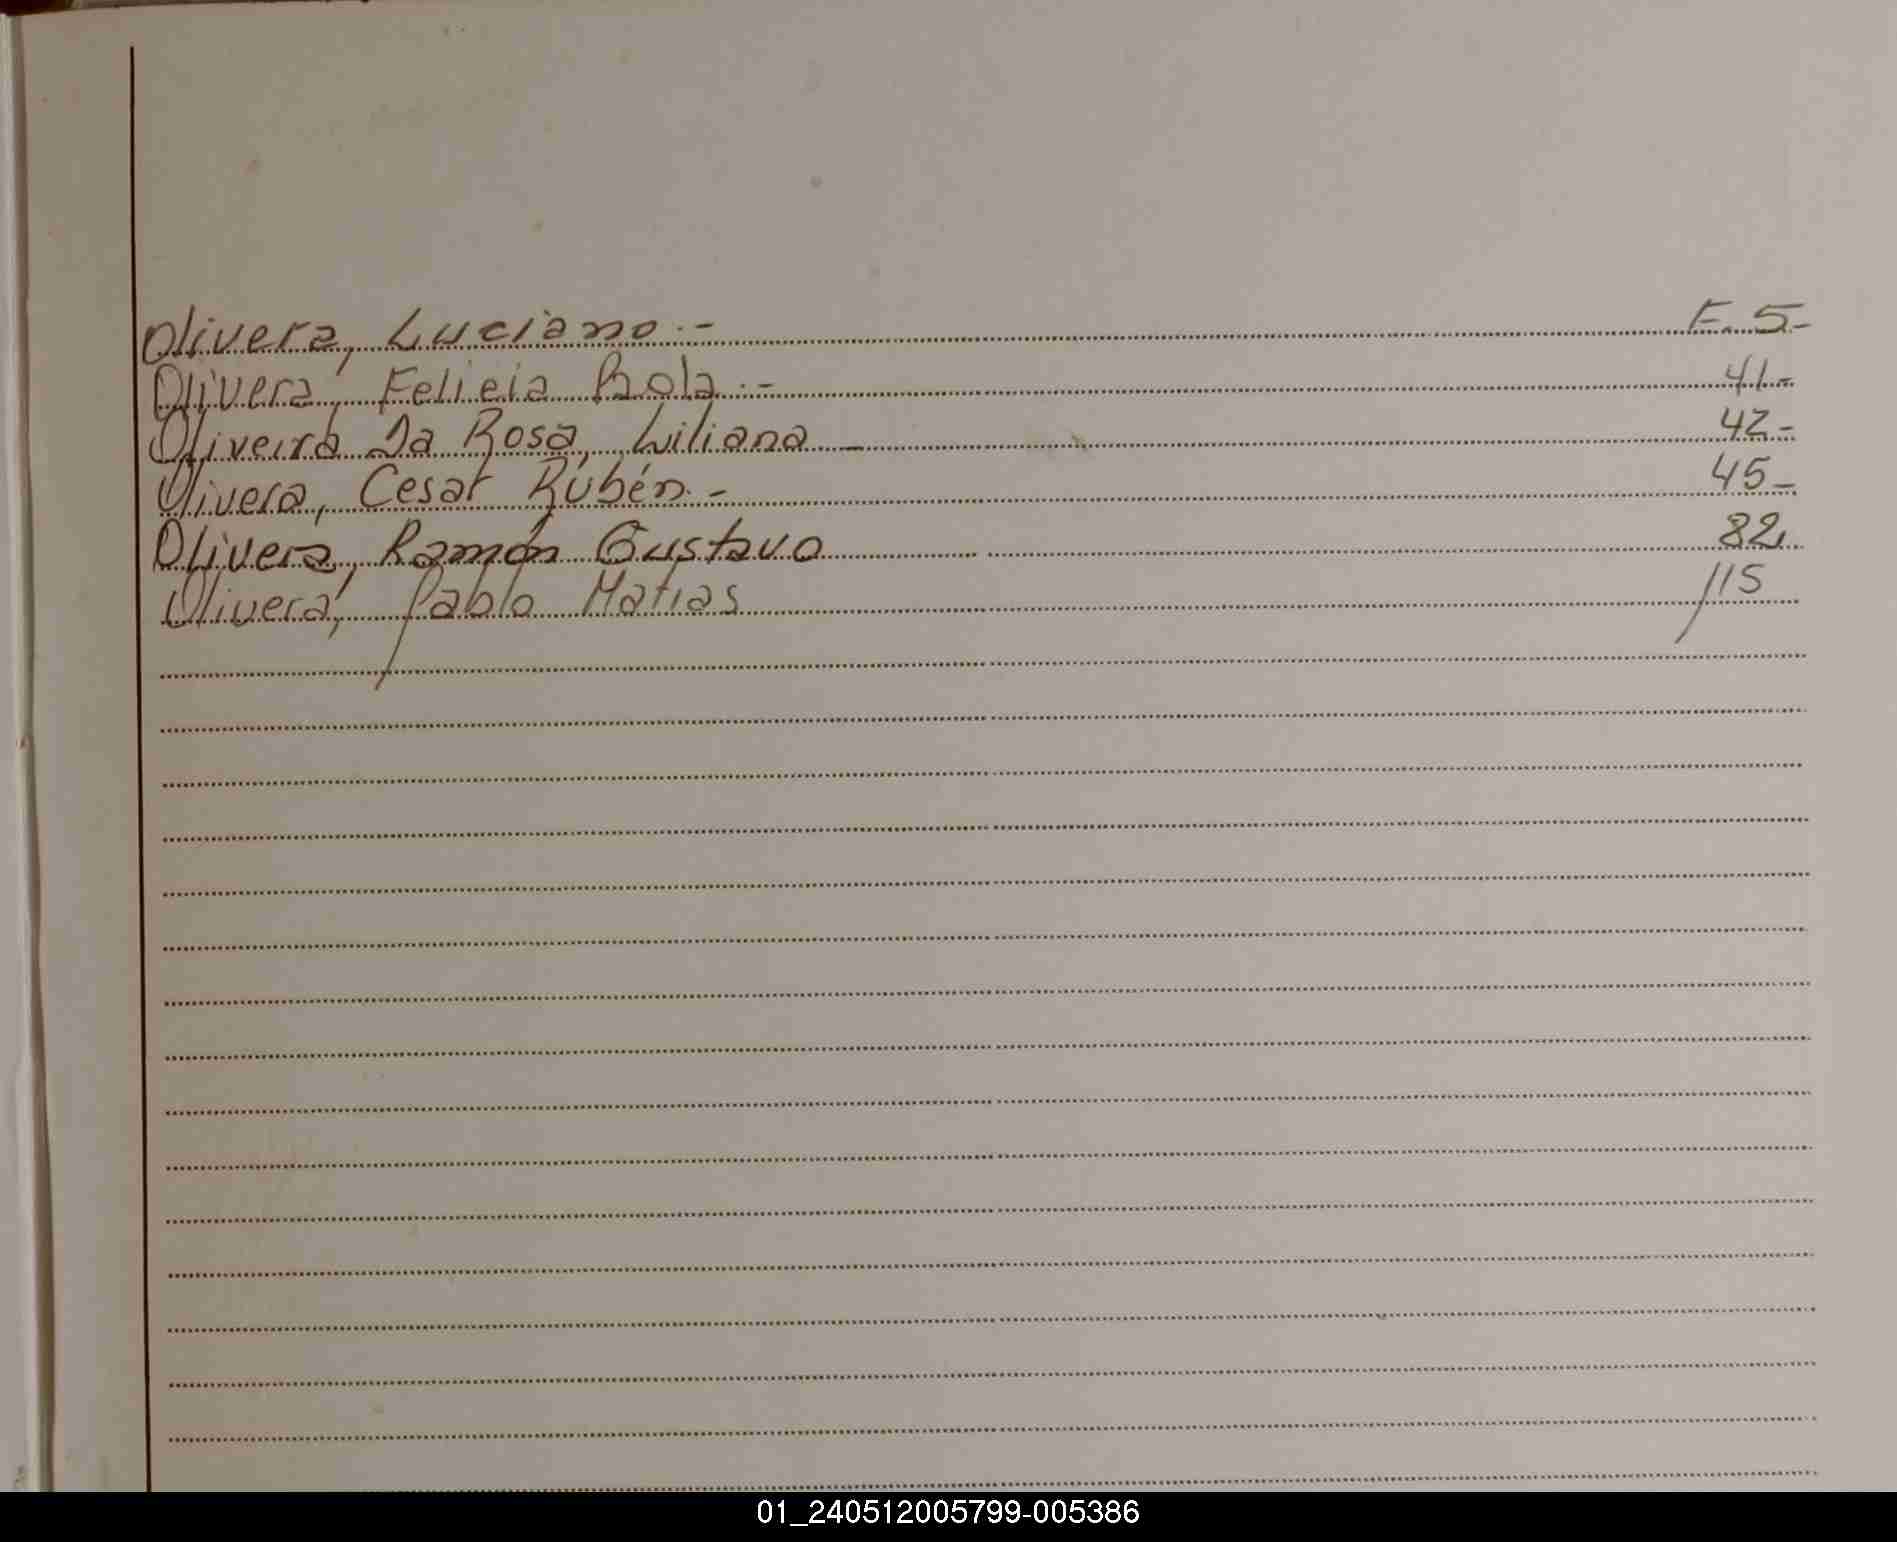 Olivera, Luciano.- F. 5-
Olivera, Felicia Rola.- 41-
Oliveira Da Rosa, Liliana - 42-
Olivera, Cesar Rubén.- 45-
Olivera, Ramón Gustavo 82
Olivera, Pablo Matias 115
01_240512005799-005386